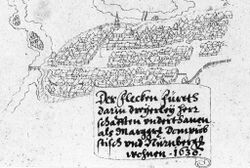 Der Flecken Fuerts
darin dreyerley Herr
schafften underthanen
als Marggrf Domprob
stisch und Nürnbergs
wohnen · 1630